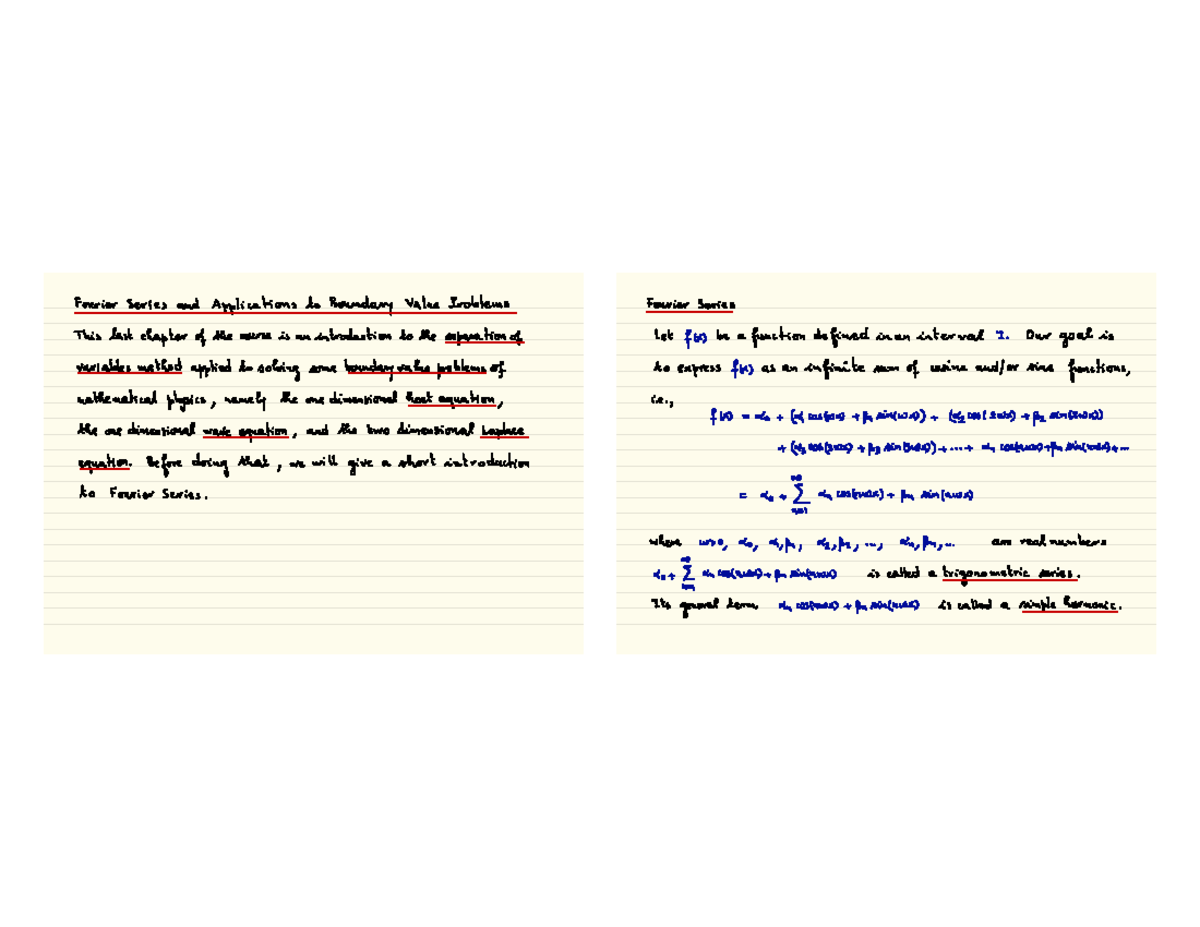 Fourier Series and Applications to Boundary Value Problems
This last chapter of the course is an introduction to the separation of
variables method applied to solving some boundary value problems of
mathematical physics, namely the one dimensional heat equation,
the one dimensional wave equation, and the two dimensional Laplace
equation. Before doing that, we will give a short introduction
to Fourier Series.
Fourier Series
Let f(x) be a function defined in an interval I. Our goal is
to express f(x) as an infinite sum of cosine and/or sine functions,
i.e.,
f(x) = α₀ + (α₁ cos(ωx) + β₁ sin(ωx)) + (α₂ cos(2ωx) + β₂ sin(2ωx))
+ (α₃ cos(3ωx) + β₃ sin(3ωx)) + .... + αₙ cos(nωx) + βₙ sin(nωx) + ...
= α₀ + ∑_{n=1}^{∞} αₙ cos(nωx) + βₙ sin(nωx)
where ω>0, α₀, α₁, β₁, α₂, β₂, ..., αₙ, βₙ, ... are real numbers
α₀ + ∑_{n=1}^{∞} αₙ cos(nωx) + βₙ sin(nωx) is called a trigonometric series.
Its general term αₙ cos(nωx) + βₙ sin(nωx) is called a simple harmonic.